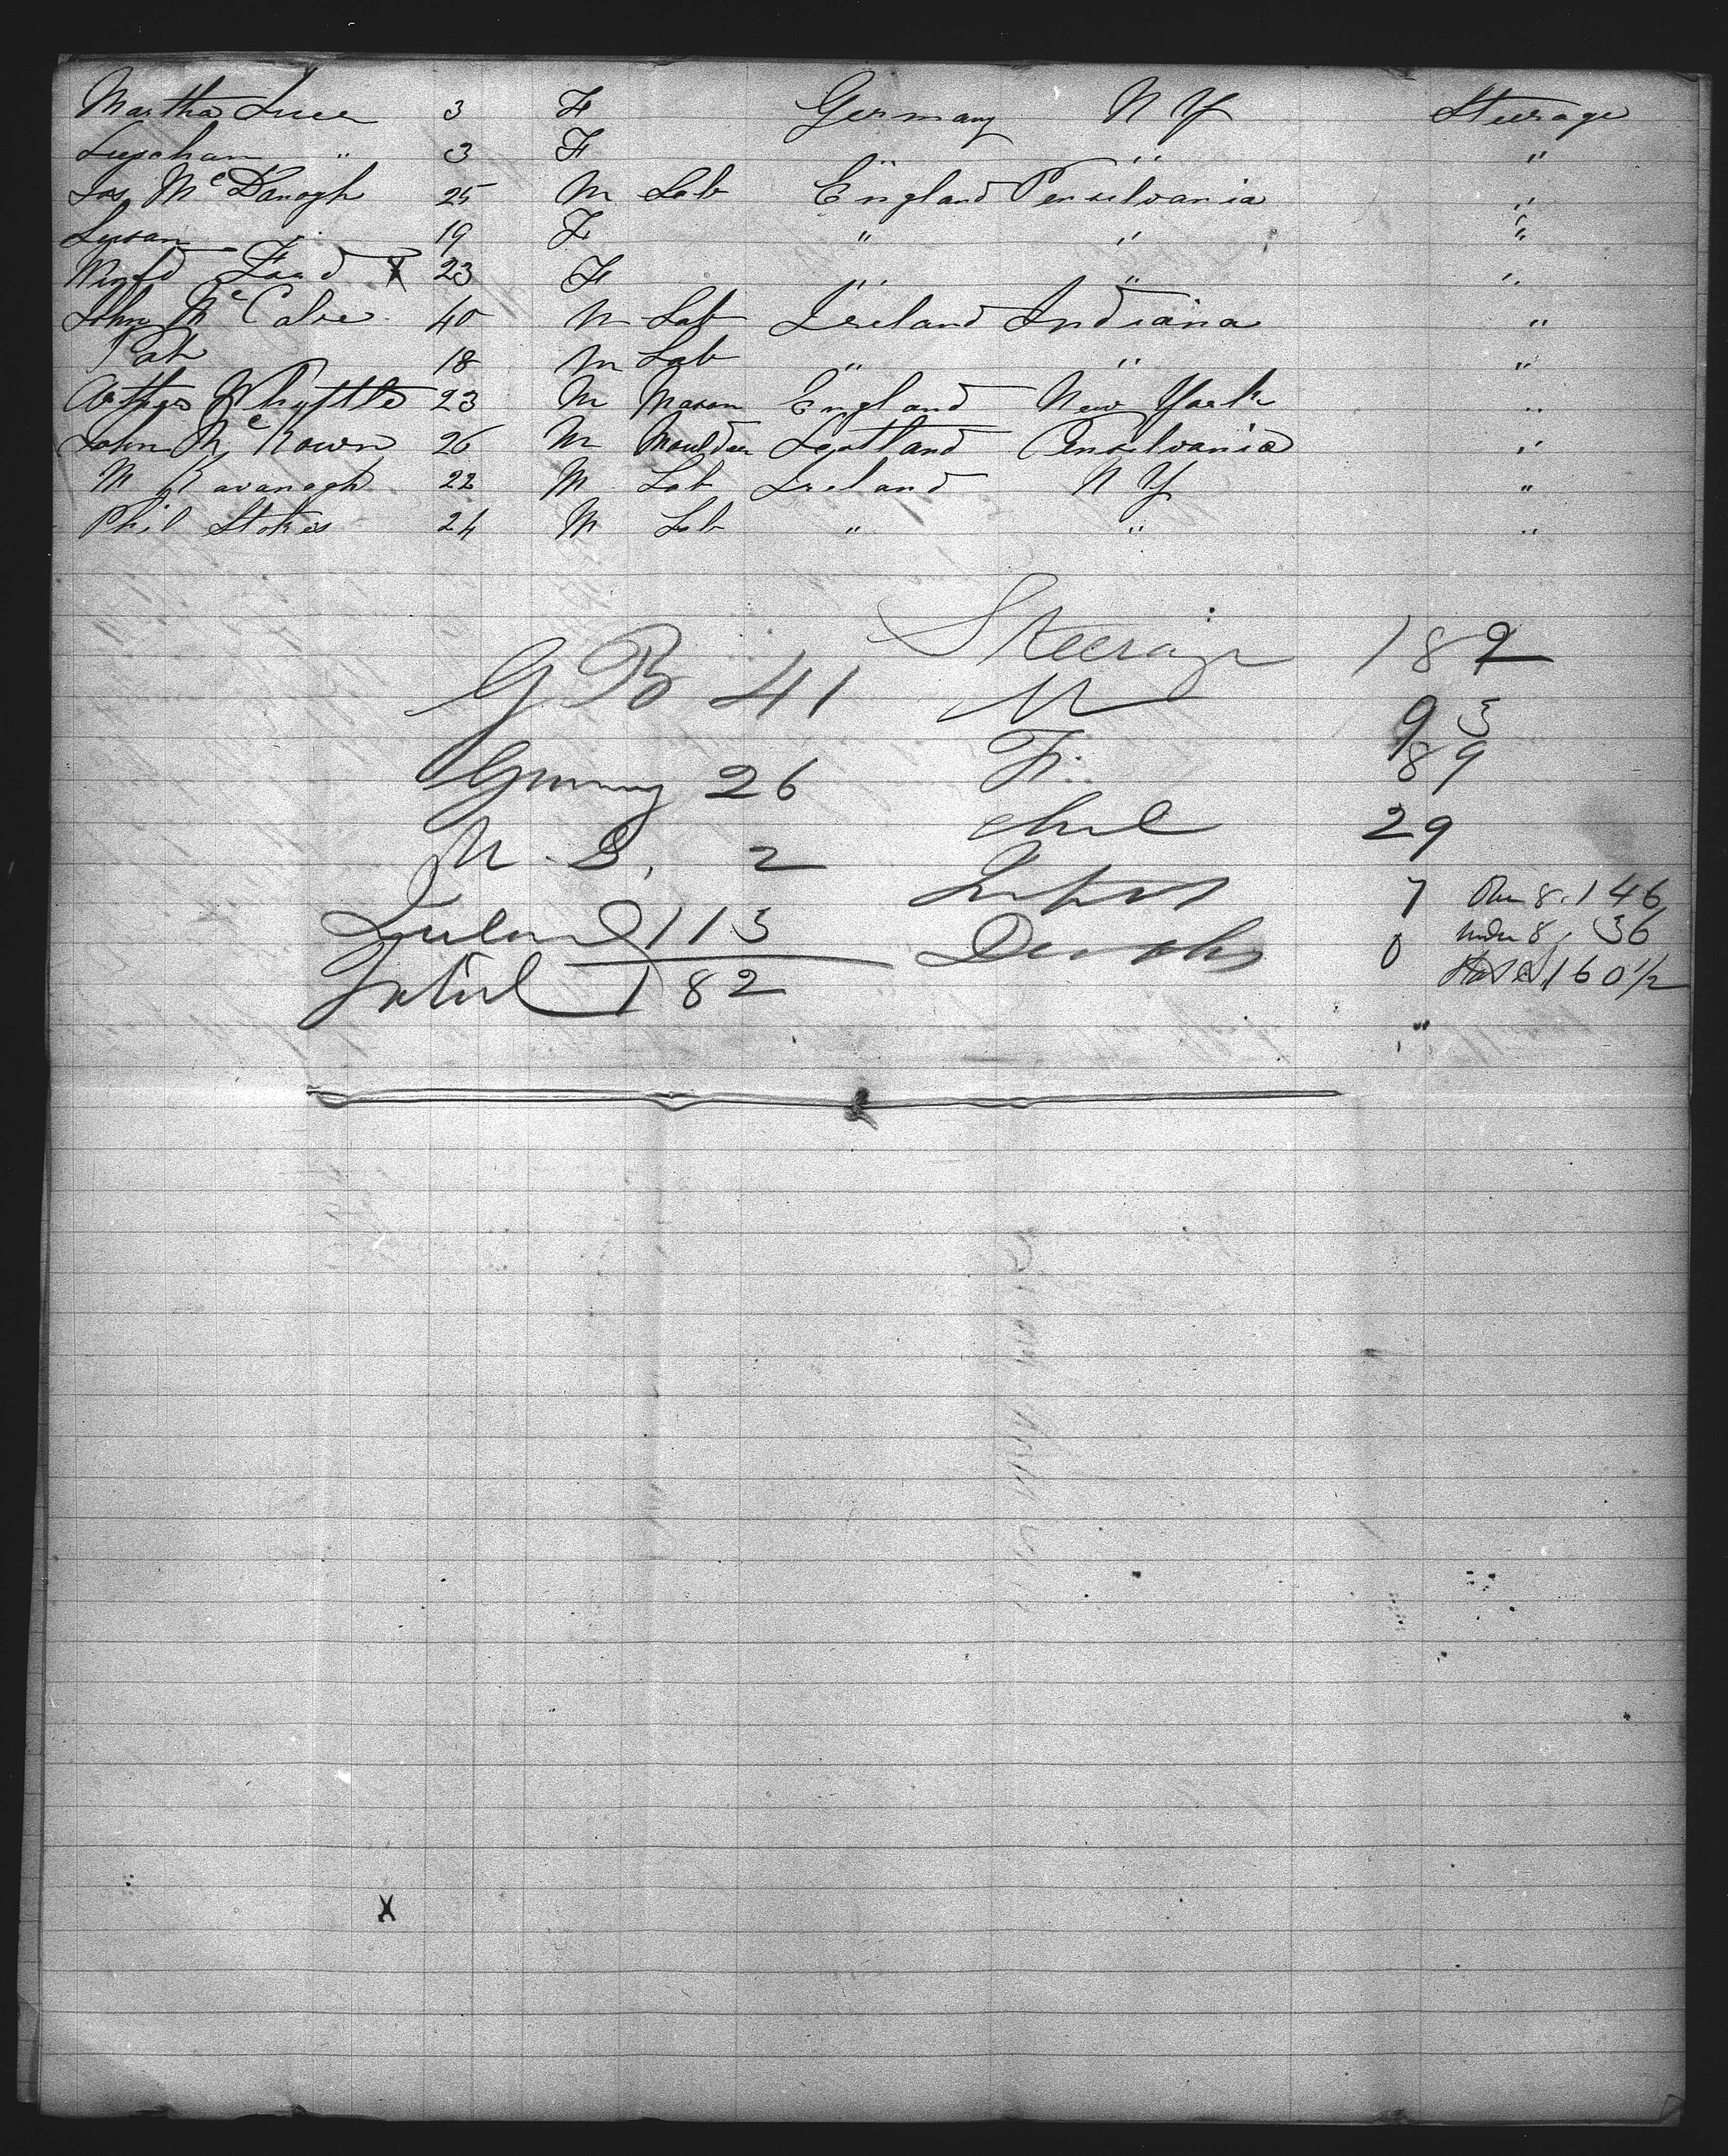 Martha 3 F Germany N Y Steerage
" 3 F " " "
Jas McDanagh 25 M Lab England Pensilvania "
19 F " " "
Ford X 23 F " " "
John McCabe 40 M Lab Ireland Indiana "
Pat 18 M Lab " " "
Arthur Whyttle 23 M Mason England New York "
John McKown 26 M Moulder Scotland Pensilvania "
M Kavanagh 22 M Lab Ireland N Y "
Phil Stokes 24 M Lab " " "
Steerage 182
G B 41 M 93
Germny 26 F 89
U. S. 2 Chil 29
Ireland 113 Infants 7 Over 8. 146
Deaths 0 Under 8, 36
Total 182 160 1/2
X